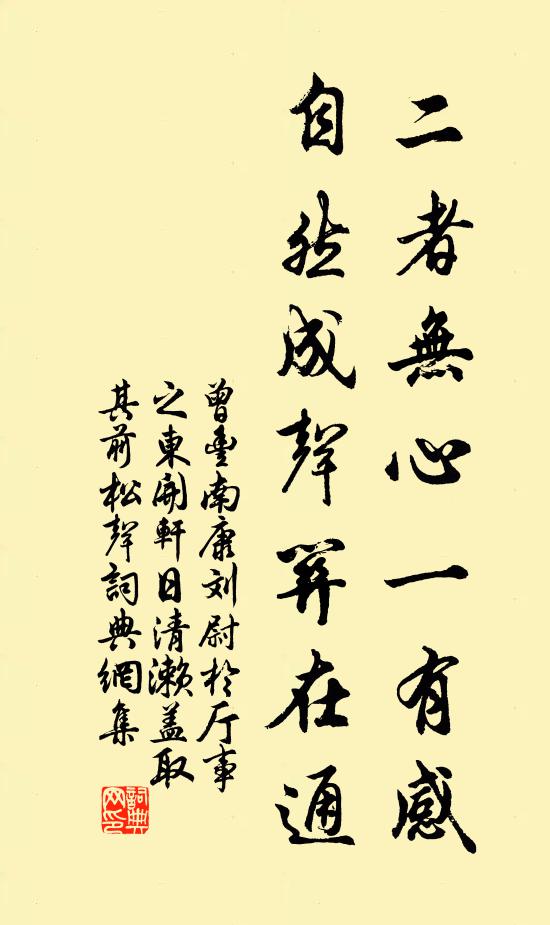 二者無心一有感
自然成聲在通
曾豐南康刘尉於厅事
之東開軒日清瀨盖取
其前松聲詞典網集
詞典网印